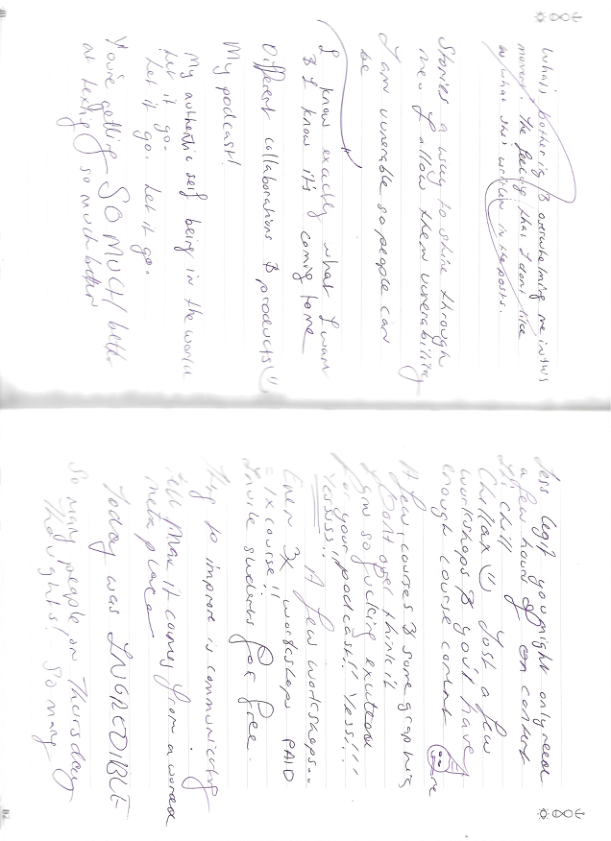 What's bothering & overwhelming me in this
moment. The feeling that I don't like
what she's in the posts.
Stories a way to shine through
me. I allow them vunerability
I am vunerable so people can
be
I know exactly what I want
& I know it's coming to me
Different collaborations & products
My podcast!
My authentic self being in the world
Let it go.
Let it go. Let it go.
You're getting SO MUCH better
at texting so much better
Jess legit you might only need
a few hours of content
chill
Chillax Just a few
workshops & you'll have
enough course content
A few courses & some graphing
Don't over think it
I am so fucking excited
for your podcast!! Yess!!!
Yessss!! A few workshops..
Even 3x workshops PAID
= 1x course!!
Invite students for free.
Try to improve in communicating
tell Max it comes from a wound
place
Today was INCREDIBLE
So many people on Thursday
Thoughts! So many